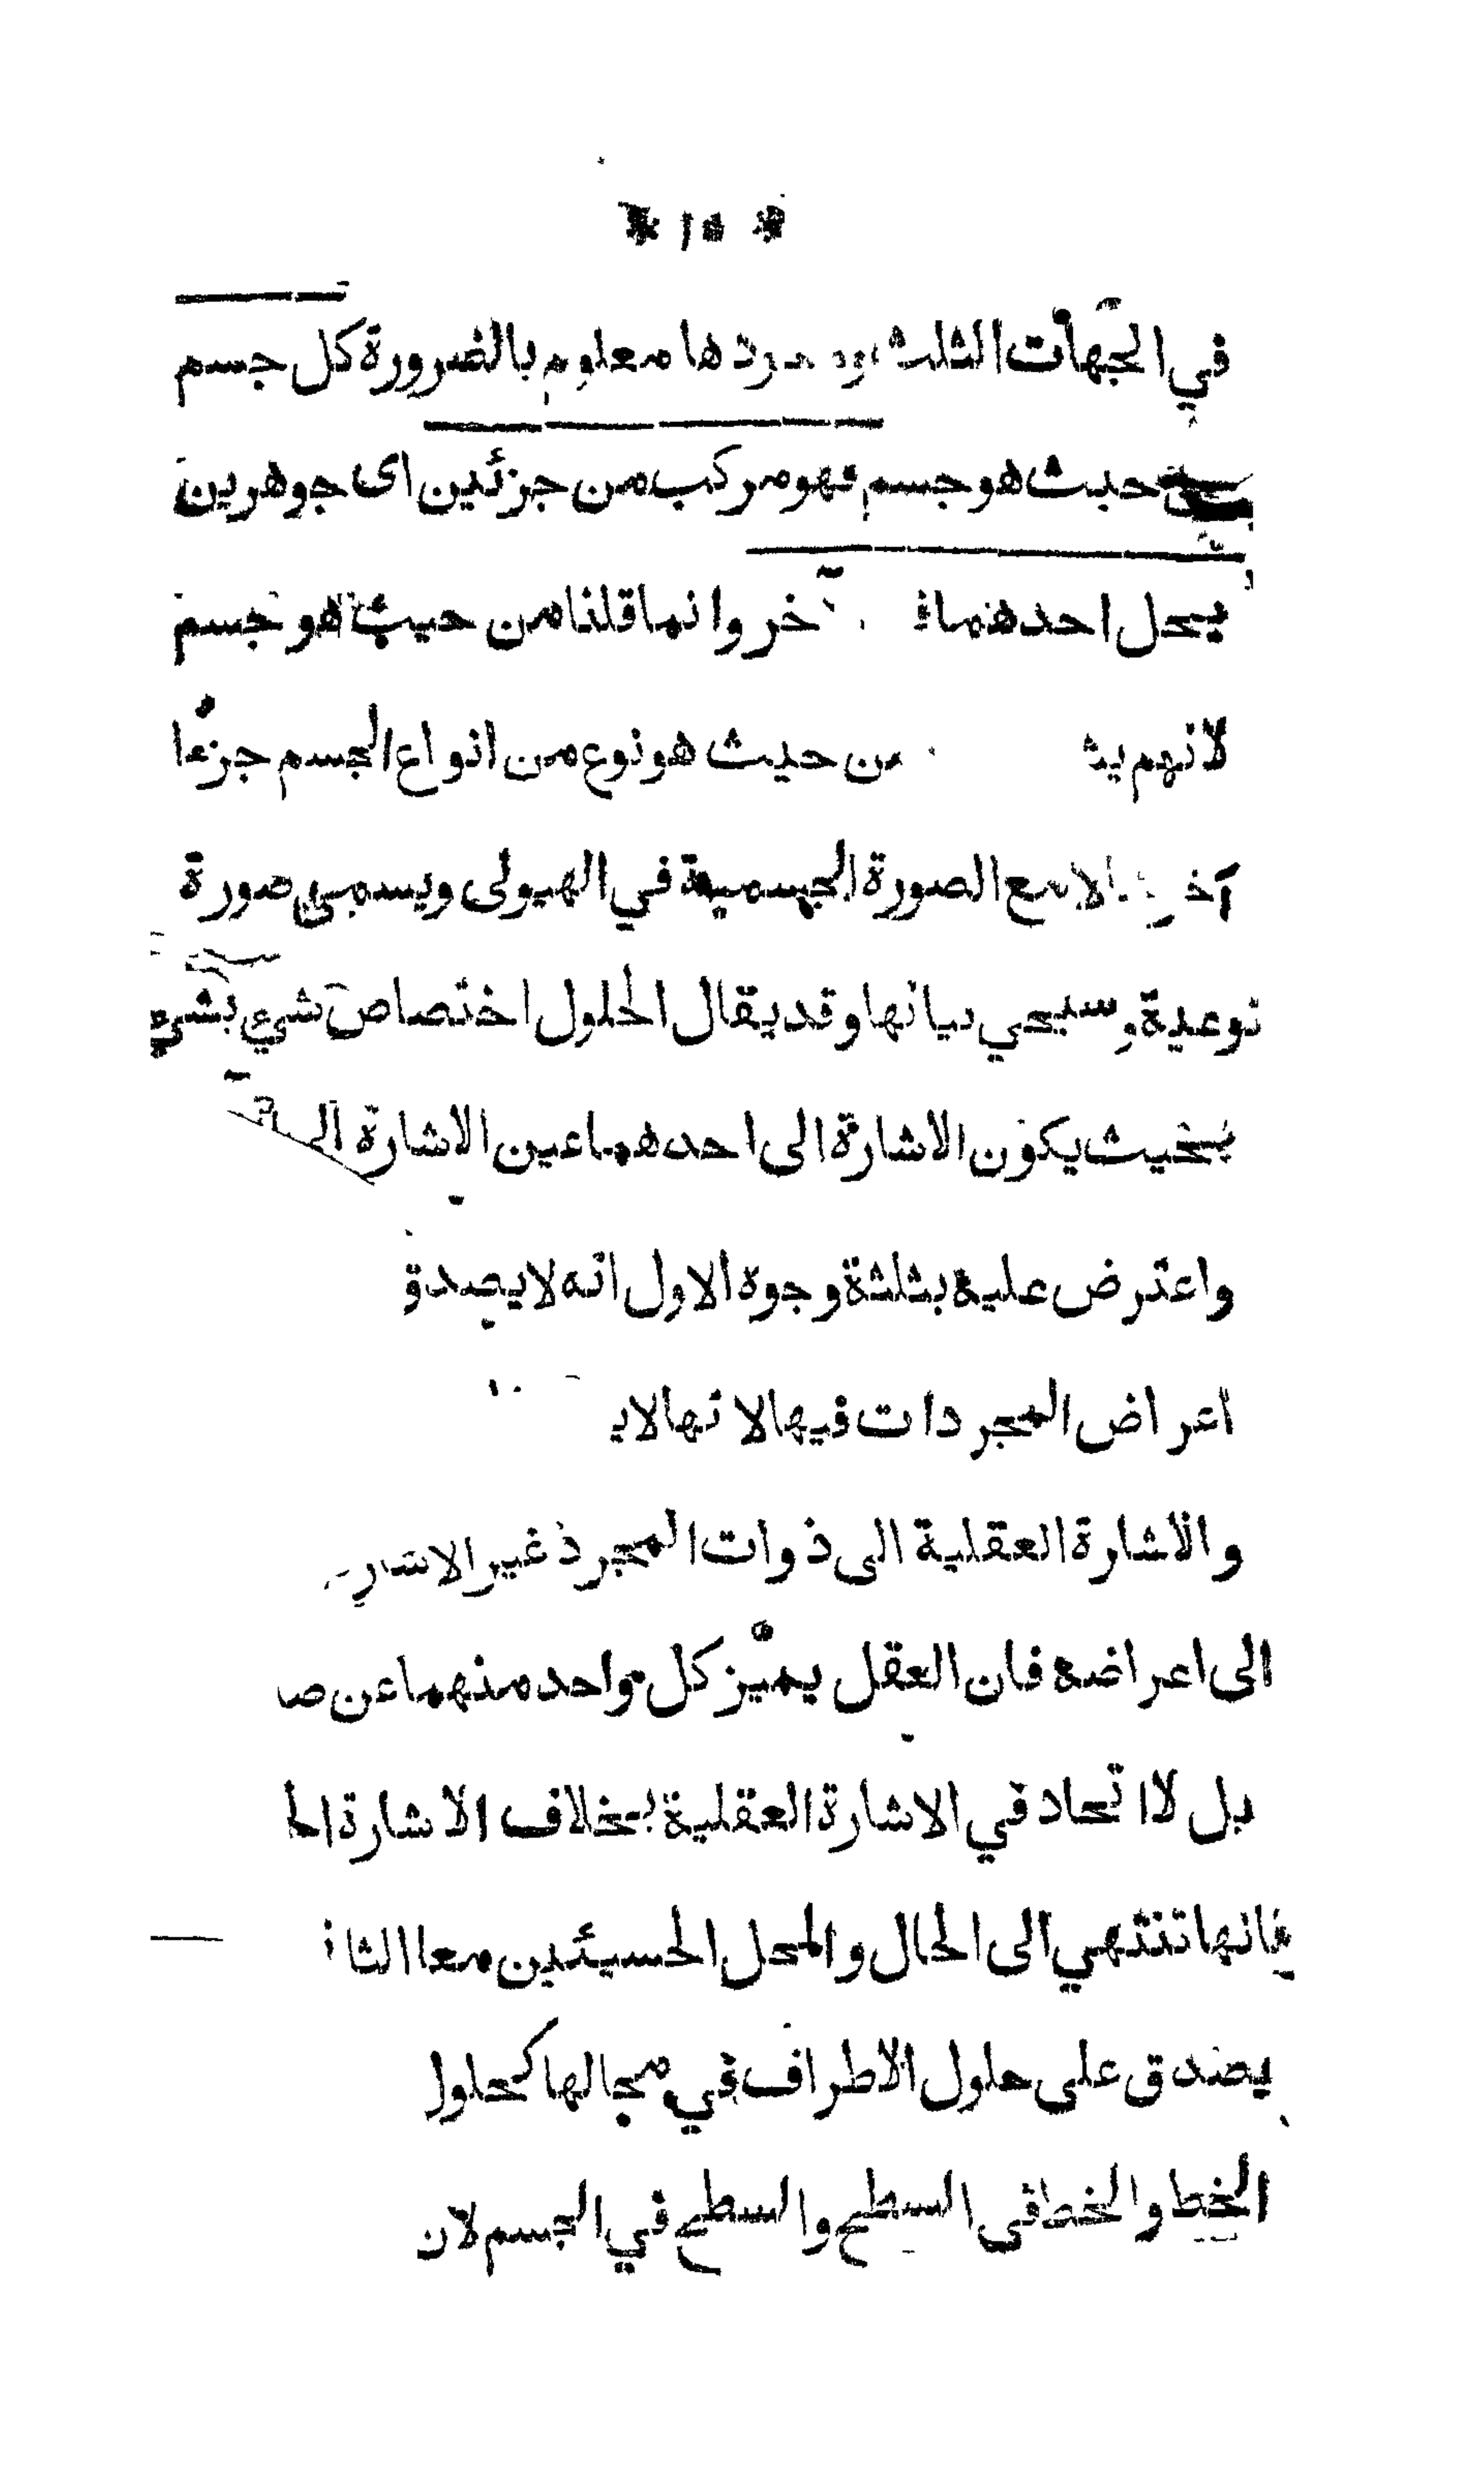 في الجهات الثلث معلوم بالضرورة كل جسم
حيث هو جسم فهو مركب من جزئين اى جوهرين
يحل احدهما خر وانما قلنا من حيث هو جسم
لانهم من حيث هو نوع من انواع الجسم جزءًا
آخر الامع الصورة الجسمية في الهيولى ويسمى صورة
نوعية وسيجي بيانها وقد يقال الحلول اختصاص شيء بشيء
بحيث يكون الاشارة الى احدهما عين الاشارة
واعترض عليه بثلثة وجوه الاول انه لا يصدق
اعراض المجردات فيها لانها لا
والاشارة العقلية الى ذوات المجرد غير
الى اعراضه فان العقل يميّز كل واحد منهما عن
بل لا اتحاد في الاشارة العقلية بخلاف الاشارة
فانها تنتهي الى الحال والمحل الحسيئين معا
يصدق على حلول الاطراف في محالها كحلول
الخط والخط في السطح والسطح في الجسم لان